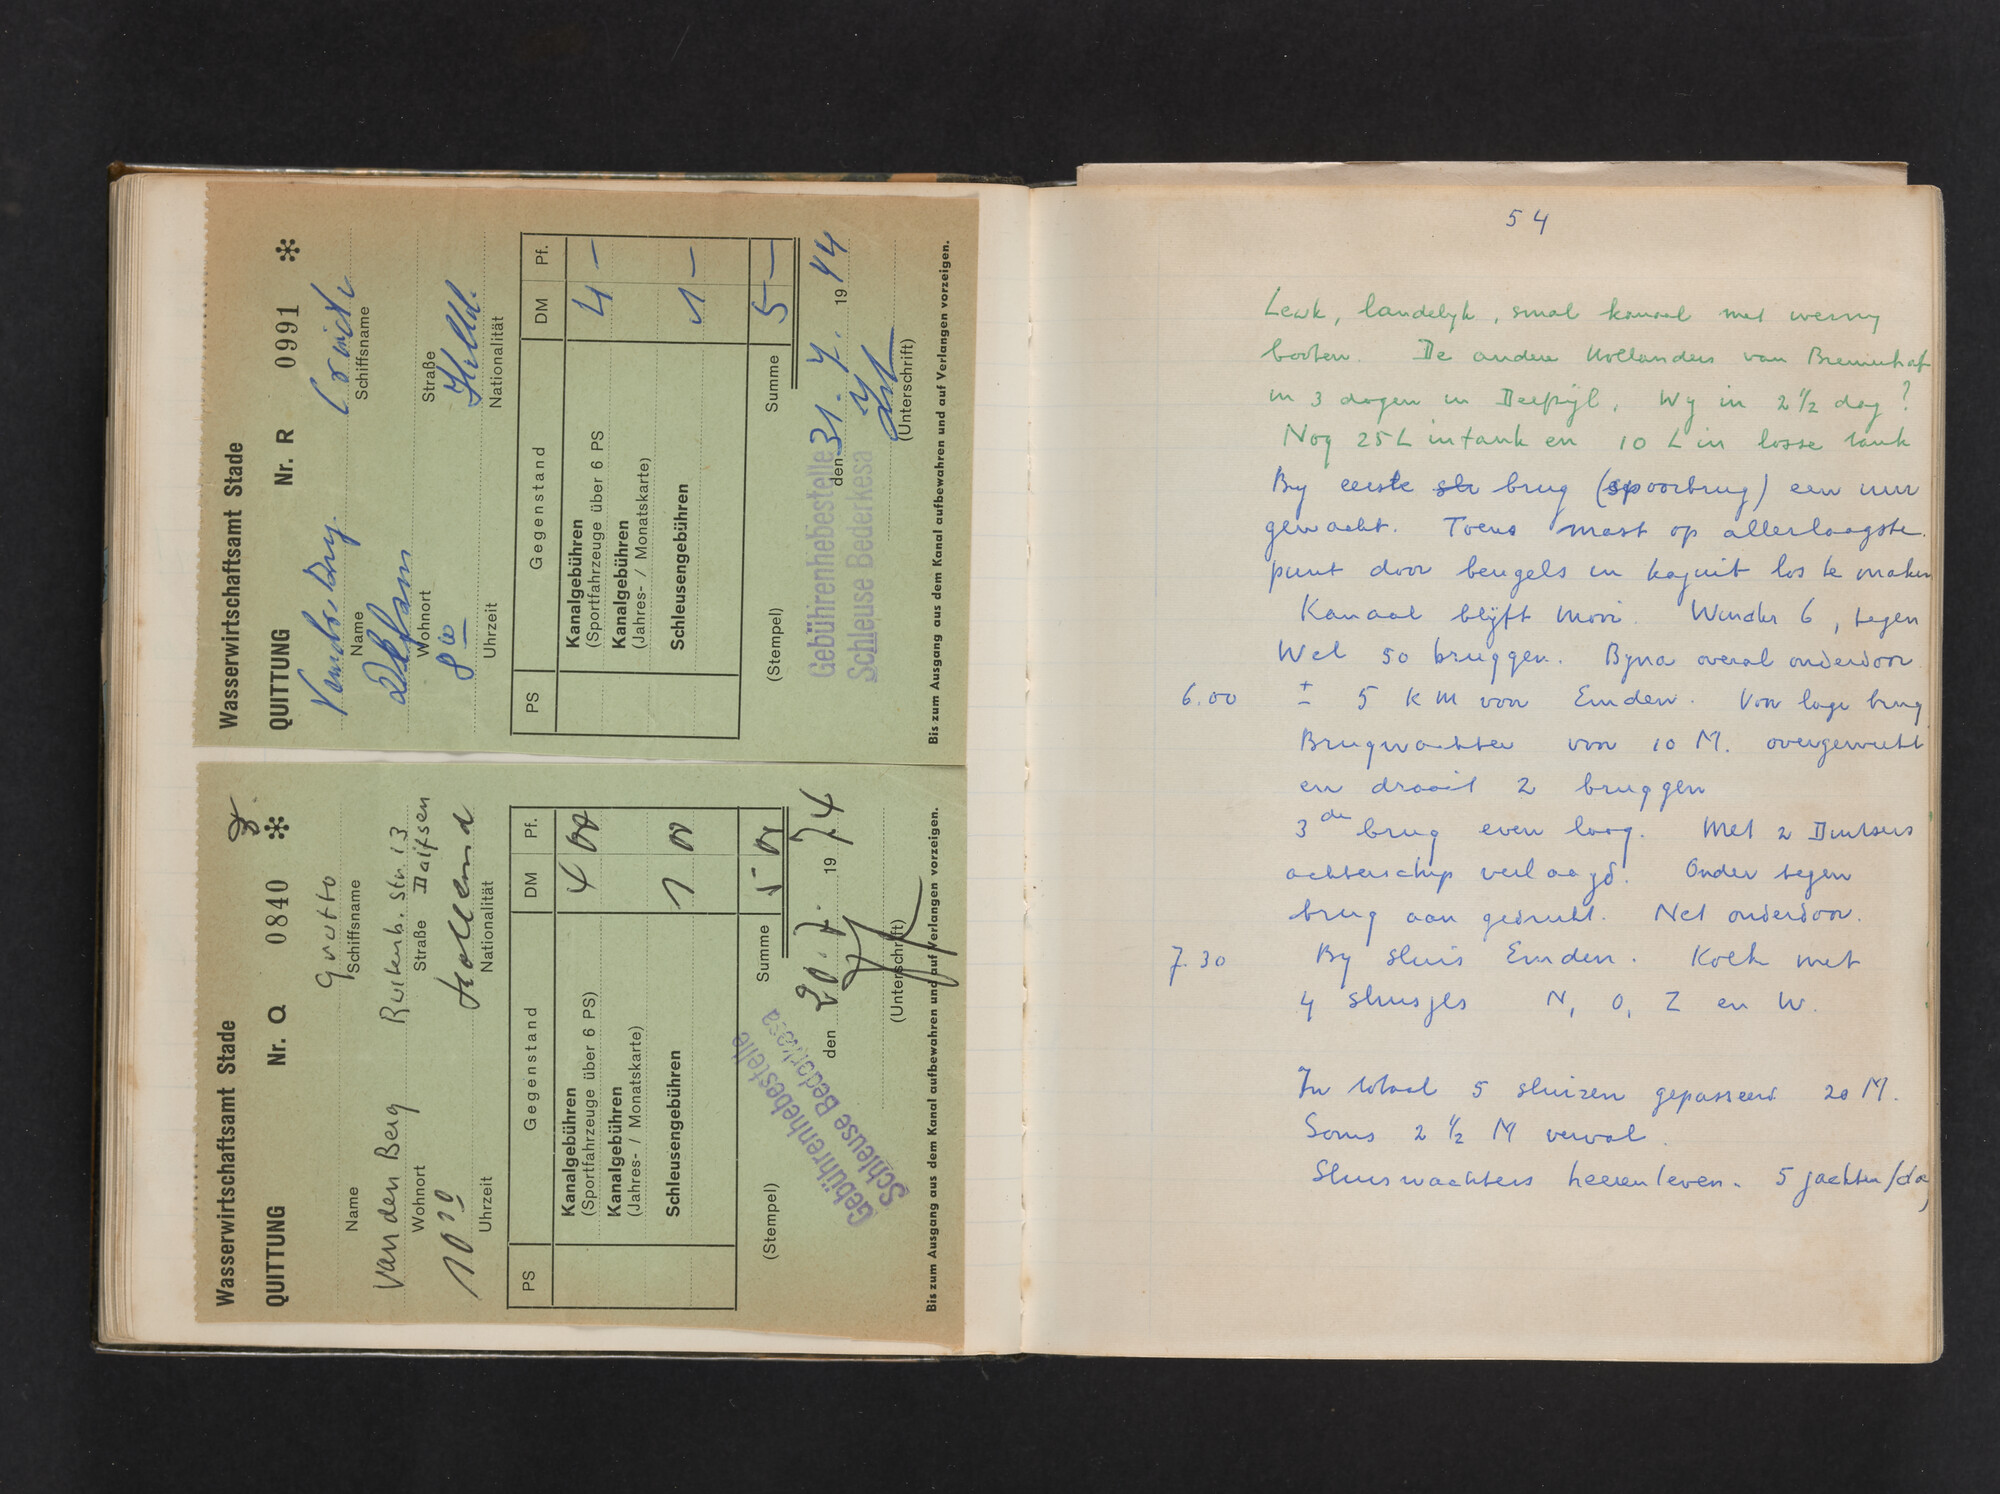 Wasserwirtschaftsamt Stade
QUITTUNG Nr. R 0991
Name Schiffsname
Wohnort Straße
8 00
Holld.
Uhrzeit Nationalität
PS Gegenstand DM Pf.
Kanalgebühren 4 –
(Sportfahrzeuge über 6 PS)
Kanalgebühren
(Jahres- / Monatskarte)
Schleusengebühren 1 –
Summe 5 –
(Stempel) den 31. 7. 19 74
Gebührenhebestelle
Schleuse Bederkesa
(Unterschrift)
Bis zum Ausgang aus dem Kanal aufbewahren und auf Verlangen vorzeigen.
Wasserwirtschaftsamt Stade
QUITTUNG Nr. Q 0840
Grutto
Name Schiffsname
Van den Berg
Str. 13
Wohnort Straße Dalfsen
10 20 Holland
Uhrzeit Nationalität
PS Gegenstand DM Pf.
Kanalgebühren 4 00
(Sportfahrzeuge über 6 PS)
Kanalgebühren
(Jahres- / Monatskarte)
Schleusengebühren 1 00
Summe 5 00
(Stempel) den 20. 7. 19 74
Gebührenhebestelle
Schleuse Bederkesa
(Unterschrift)
Bis zum Ausgang aus dem Kanal aufbewahren und auf Verlangen vorzeigen.
54
Leuk, landelyk, smal kanaal met weinig
boten. De andere Hollanders van Bremerhaf
in 3 dagen in Delfzijl. Wy in 2 1/2 dag?
Nog 25 L in tank en 10 L in losse tank
By eerste slu brug (spoorbrug) een uur
gewacht. Toens mast op allerlaagste
punt door beugels in kajuit los te maken
Kanaal blijft mooi. Winder 6, tegen
Wel 50 bruggen. Byna overal onderdoor
6.00 ± 5 KM voor Emden. Voor lage brug
Brugwachter voor 10 M. overgewerkt
en draait 2 bruggen
3de brug even laag. Met 2 Duitsers
achterschip verlaagd. Onder tegen
brug aan gedrukt. Net onderdoor.
7.30 By sluis Emden. Kolk met
4 sluisjes N, O, Z en W.
In totaal 5 sluizen gepasseerd 20 M.
Soms 2 1/2 M verval.
Sluiswachters heerenleven. 5 jachten/dag